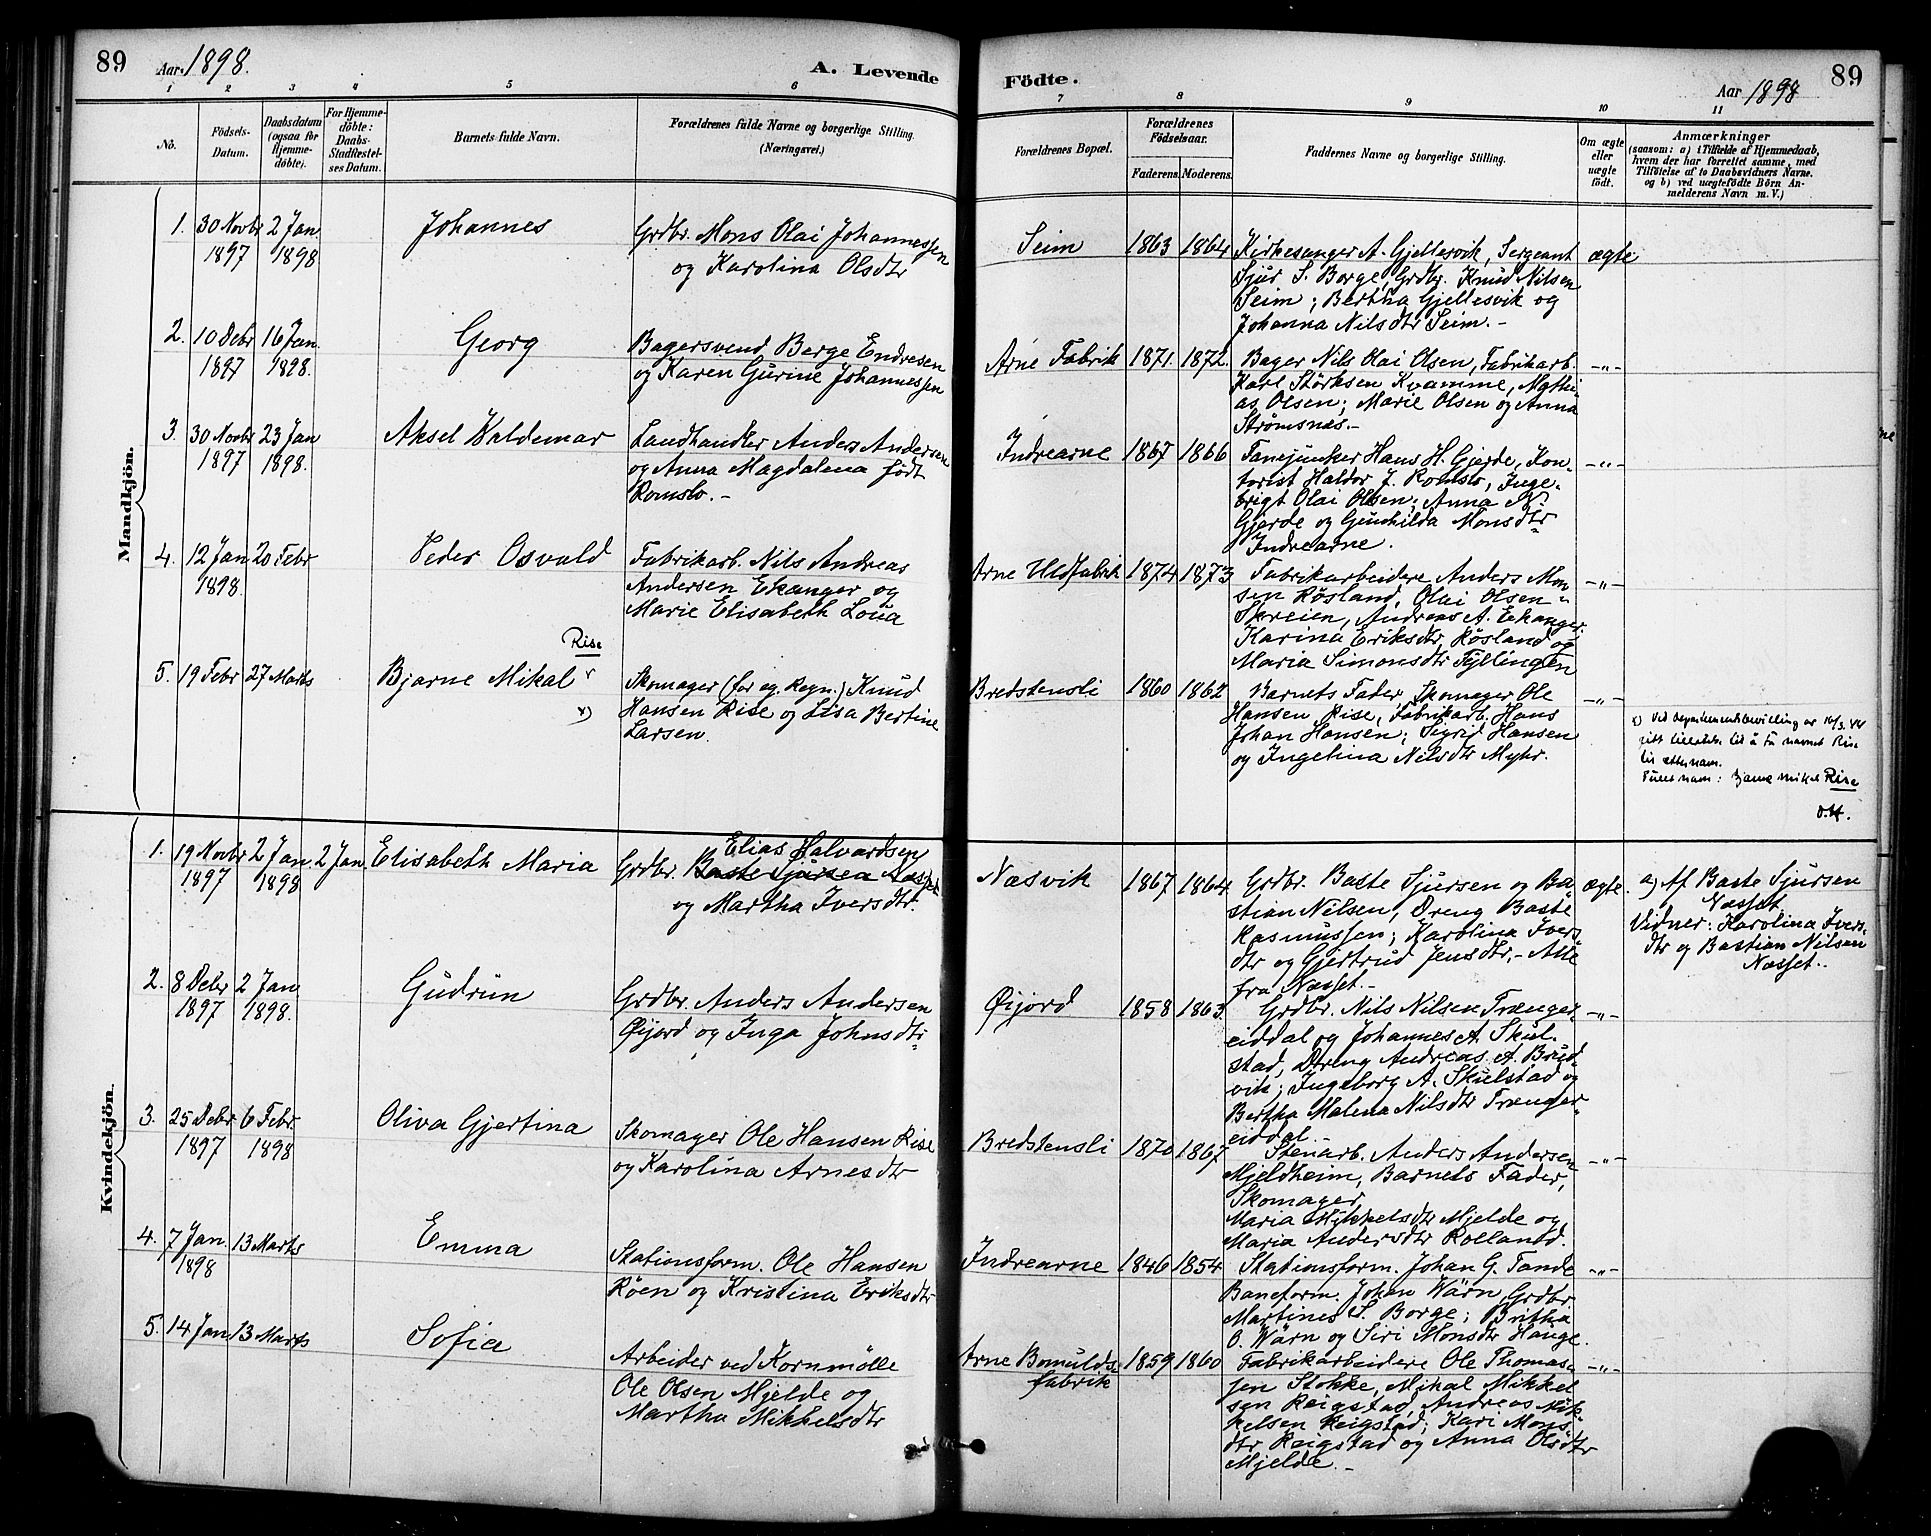 89 Aar 1898. A. Levende
Födte. Aar 1898 89
1 2 3 4 5 6
7 8 9 10 11
No.
Födsels-
Datum.
Daabsdatum
(ogsaa for
Hjemme-
döbte).
For Hjemme-
döbte:
Daabs-
Stadfæstel-
ses Datum.
Barnets fulde Navn.
Forældrenes fulde Navne og borgerlige Stilling.
(Næringsvei.)
Forældrenes Bopæl.
Forældrenes
Födselsaar.
Faderens. Moderens.
Faddernes Navne og borgerlige Stilling.
Om ægte
eller
uægte
født.
Anmærkninger
(saasom: a) i Tilfælde af Hjemmedaab,
hvem der har forrettet samme, med
Tilføielse af to Daabsvidners Navne.
og b) ved uægtefödte Börn An-
melderens Navn m. V.)
Mandkjön.
1. 30 Novbr 1897
2 Jan 1898
Johannes
Grdbr. Mons Olai Johannessen
og Karolina Olsdtr
Seim 1863 1864
Kirkesanger A. Gjellesvik, Sergeant
Sjur S. Borge, Grdbr. Knud Nilsen
Seim; Bertha Gjellesvik og
Johanna Nilsdtr Seim.-
ægte
2. 10 Debr 1897
16 Jan. 1898.
Georg
Bagersvend Berge Endresen
og Karen Gurine Johannessen
Arne Fabrik 1871. 1872.
Bager Nils Olai Olsen, Fabrikarb.
Karl Störksen Kvamme, Mathi-
as Olsen; Marie Olsen og Anna
Strömsnæs.-
-"-
3. 30 Novbr 1897
23 Jan 1898.
Aksel Valdemar
Landhandler Anders Andersen
og Anna Magdalena født
Romslo.-
Indrearne 1867 1866
Fanejunker Hans H. Gjerde, Kon-
torist Haldor J. Romslo, Inge-
brigt Olai Olsen; Anna N.
Gjerde og Gunhilda Monsdtr
Indrearne.
-"-
4. 12 Jan 1898.
20 Febr
Peder Osvald
Fabrikarb. Nils Andreas
Andersen Ekanger og
Marie Elisabeth Loua
Arne Uldfabrik 1874 1873
Fabrikarbeidere Anders Mon-
sen Røsland, Olai Olsen
Skreien, Andreas A. Ekanger.
Karina Eriksdtr Røsland og
Maria Simonsdtr Tyllingen
-"-
5. 19 Febr 27 Marts
Rise
Bjarne Mikal
x)
Skomager (for eg. Regn.) Knud
Hansen Rise og Lisa Bertine
Larsen.
Bredstensli 1860 1862
Barnets Fader, Skomager Ole
Hansen Rise, Fabrikarb. Hans
Johan Hansen; Sigrid Hansen
og Ingelina Nilsdtr Myhr.
-"-
x) Ved departementsbevilling av 16/3. 44
gitt tillatelse til å ta navnet Rise
til etternavn.
Fullt navn: Bjarne Mikal Rise
O.H.
Kvindekjön.
1. 19 Novbr 1897
2 Jan. 1898
2 Jan.
Elisabeth Maria
Elias Halvardsen
Grdbr. Baste Sjursen Næsset
og Martha Iversdtr.
Næsvik 1867 1864.
Grdbr. Baste Sjursen og Ba-
stian Nilsen, Dreng Baste
Rasmussen; Karolina Ivers
dtr og Gjertrud Jensdtr,- Alle
fra Næsset.-
ægte.
a) Af Baste Sjursen
Næsset
Vidner: Karolina Ivers-
dtr og Bastian Nilsen
Næsset..
2. 8 Debr 1897
2 Jan 1898.
Gudrun
Grdbr. Anders Andersen
Øijord og Inga Johnsdtr
Øijord 1858 1863.
Grdbr. Nils Nilsen Trænger-
eiddal og Johannes A. Skul-
stad, Dreng Andreas A. Brud-
vik; Ingeborg A. Skulstad og
Bertha Malena Nilsdtr Trænger-
eiddal.
-"-
3. 25 Debr 1897
6 Febr. 1898
Oliva Gjertina
Skomager Ole Hansen Rise
og Karolina Arnesdtr
Bredstensli 1870 1867
Stenarb. Anders Andersen
Mjeldheim, Barnets Fader,
Skomager,
Maria Mikkelsdtr Mjelde og
Maria Andersdtr Rolland.
-"-
4. 7 Jan. 1898
13 Marts
Emma
Stationsform. Ole Hansen
Röen og Kristina Eriksdtr
Indrearne 1846 1854
Stationsform. Johan G. Tande
Baneform. Johan Wärn, Grdbr.
Martines S. Borge; Britha
O. Wärn og Siri Monsdtr Hauge.
-"-
5. 14 Jan 13 Marts
Sofia
Arbeider ved Kornmölle
Ole Olsen Mjelde og
Martha Mikkelsdtr
Arne Bomulds-
fabrik
1859 1860
Fabrikarbeidere Ole Thomas-
sen Stokke, Mikal Mikkel
sen Reigstad, Andreas Mik-
kelsen Reigstad; Kari Mons-
dtr Reigstad og Anna Olsdtr
Mjelde.-
-"-